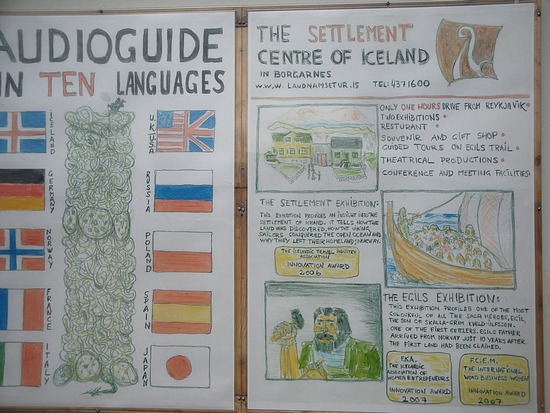 AUDIOGUIDE
IN TEN LANGUAGES
ICELAND
U.K
USA
GERMANY
RUSSIA
NORWAY
POLAND
FRANCE
SPAIN
ITALY
JAPAN
THE SETTLEMENT
CENTRE OF ICELAND
IN BORGARNES
W.W.W. LANDNAMSETUR.IS TEL: 4371600
ONLY ONE HOURS DRIVE FROM REYKJAVÍK
TWO EXHIBITIONS
RESTURANT
SOUVENIR AND GIFT SHOP
GUIDED TOURS ON EGILS TRAIL
THEATRICAL PRODUCTIONS
CONFERENCE AND MEETING FACILITIES
THE SETTLEMENT EXHIBITION:
THIS EXHIBITION PROVIDES AN INSIGHT INTO THE
SETTLEMENT OF ICELAND. IT TELLS HOW THE
LAND WAS DISCOVERED, HOW THE VIKING
SAILORS CONQUERED THE OPEN OCEAN AND
WHY THEY LEFT THEIR HOMELAND; NORWAY.
THE ICELANDIC TRAVEL INDUSTRY
ASSOCIATION
INNOVATION AWARD
2006
THE EGILS EXHIBITION:
THIS EXHIBITION PROFILES ONE OF THE MOST
COLOURFUL OF ALL THE SAGA HEROES, EGIL
THE SON OF SKALLA-GRIM KVELD-ULFSSON.
ONE OF THE FIRST SETTLERS. EGILS FATHER
ARRIVED FROM NORWAY JUST 10 YEARS AFTER
THE FIRST LAND HAD BEEN CLAIMED.
F.K.A.
THE ICELANDIC
ASSOCIATION OF
WOMEN ENTREPENEURS
INNOVATION AWARD
2007
F.C.E.M.
THE INTERNATIONAL
WORLD BUSINESS WOMEN
INNOVATION AWARD
2007